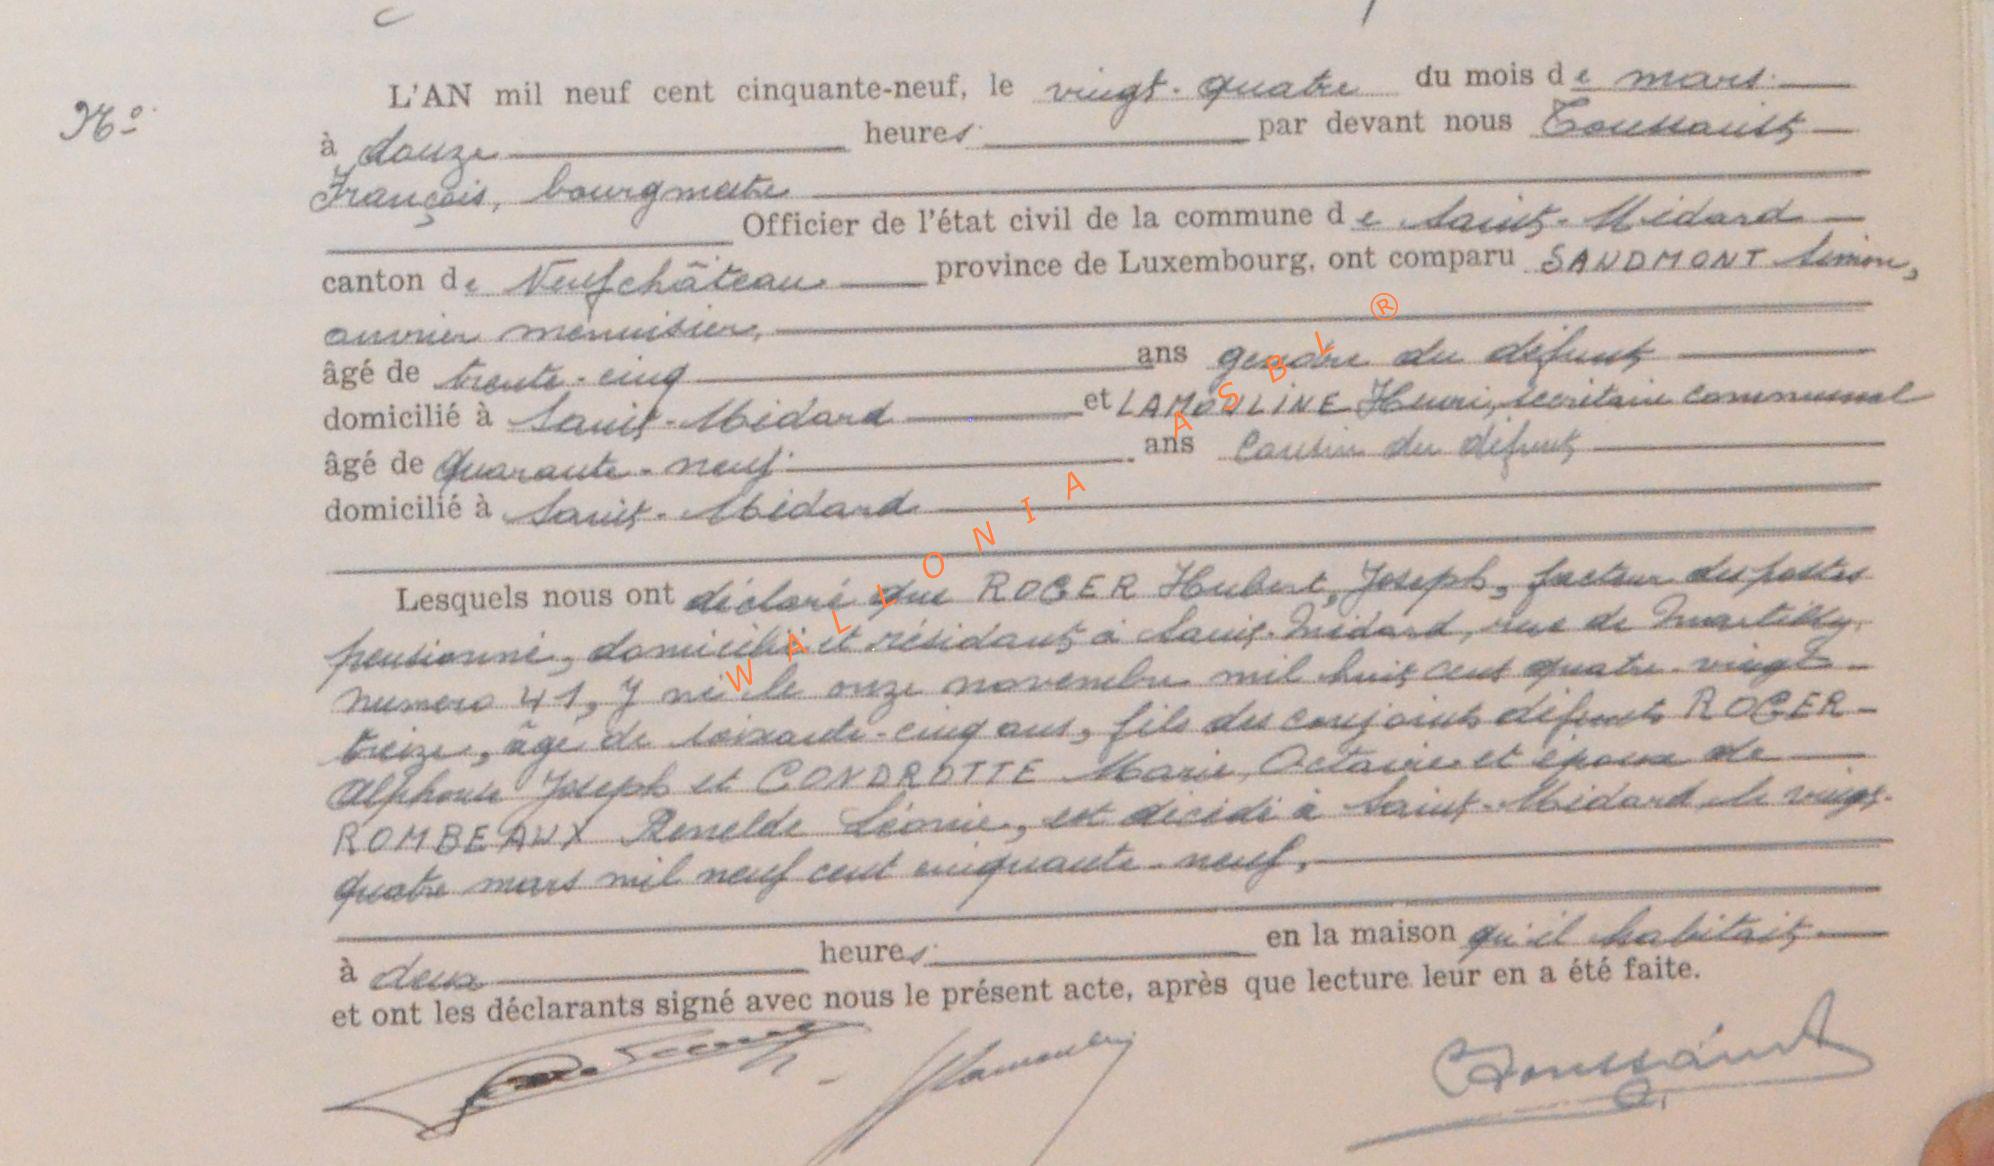 L'AN mil neuf cent cinquante-neuf, le vingt-quatre du mois de mars
N°
à douze heures par devant nous Toussaint
François, bourgmestre
Officier de l'état civil de la commune de Saint-Médard
canton de Neufchâteau province de Luxembourg, ont comparu SANDMONT Simon,
ouvrier menuisier,
âgé de trente-cinq ans gendre du défunt
domicilié à Saint-Médard et LAMOULINE Henri, secrétaire communal
âgé de quarante-neuf ans cousin du défunt
domicilié à Saint-Médard
Lesquels nous ont déclaré que ROGER Hubert, Joseph, facteur des postes
pensionné, domicilié et résidant à Saint-Médard, rue de Martilly,
numéro 41, y né le onze novembre mil huit cent quatre-vingt-
treize, âgé de soixante-cinq ans, fils des conjoints défunts ROGER
Alphonse Joseph et CONDROTTE Marie, Octavie et époux de
ROMBEAUX Renelde Léonie, est décédé à Saint-Médard, le vingt-
quatre mars mil neuf cent cinquante-neuf,
à deux heures en la maison qu'il habitait,
et ont les déclarants signé avec nous le présent acte, après que lecture leur en a été faite.
Lamouline
Toussaint
WALLONIA ASBL ®